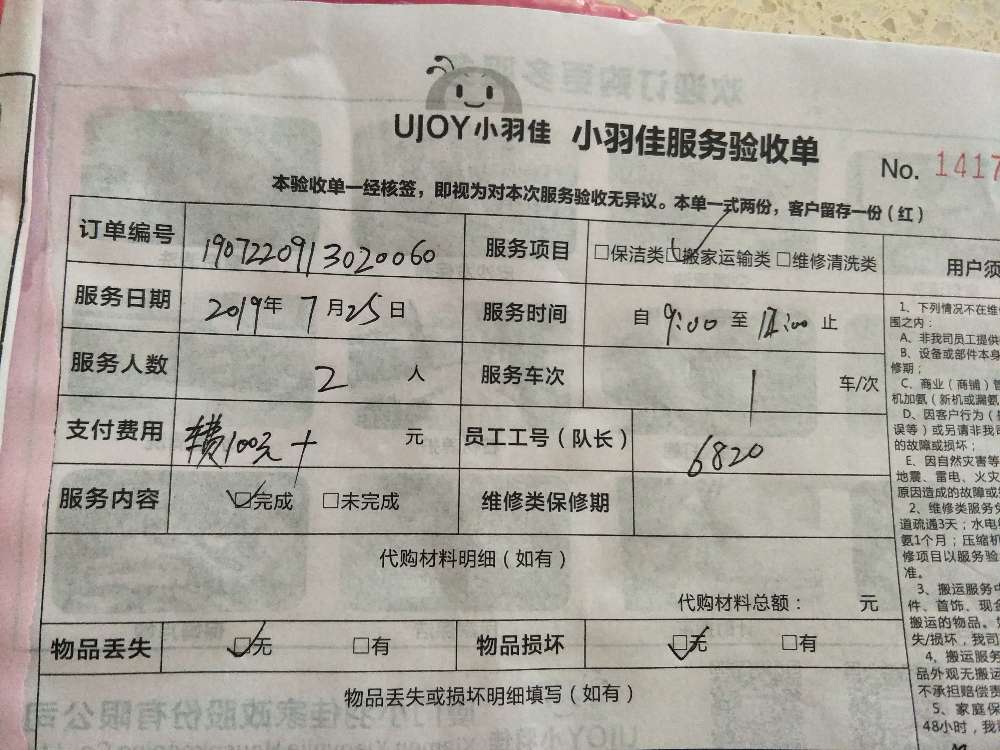 UJOY小羽佳 小羽佳服务验收单
No. 1417
本验收单一经核签，即视为对本次服务验收无异议。本单一式两份，客户留存一份（红）
订单编号 1907220913020060 服务项目 □保洁类 □搬家运输类 □维修清洗类
服务日期 2019年7月25日 服务时间 自 9:00 至 12:00 止
服务人数 2 人 服务车次 1 车/次
支付费用 100元+ 元 员工工号（队长） 6820
服务内容 □完成 □未完成 维修类保修期
代购材料明细（如有）
代购材料总额： 元
物品丢失 □无 □有 物品损坏 □无 □有
物品丢失或损坏明细填写（如有）
用户须
1、下列情况不在维
围之内：
A、非我司员工提供
B、设备或部件本身
修期；
C、商业（商铺）管
机加氨（新机或漏氨
D、因客户行为（
误等）或另请非我司
的故障或损坏；
E、因自然灾害等
地震、雷电、火灾
原因造成的故障或
2、维修类服务免
道疏通3天；水电
氨1个月；压缩机
修项目以服务验
准。
3、搬运服务中
件、首饰、现金
搬运的物品。
失/损坏，我司
4、搬运服务
品外观无搬运
不承担赔偿责
5、家庭保
48小时，我